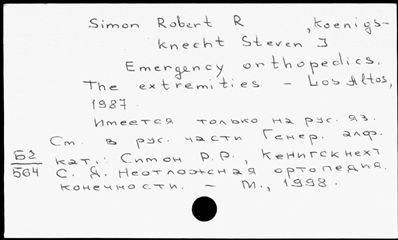 Simon Robert R , Koenigs-
knecht Steven J
Emergency orthopedics.
The extremities. - Los Altos,
1987.
Имеется только на рус. яз.
См. в рус. части Генер. алф.
кат.: Симон Р.Р., Кенигскнехт
С. Я. Неотложная ортопедия.
конечности. - М., 1998.
Б2
564